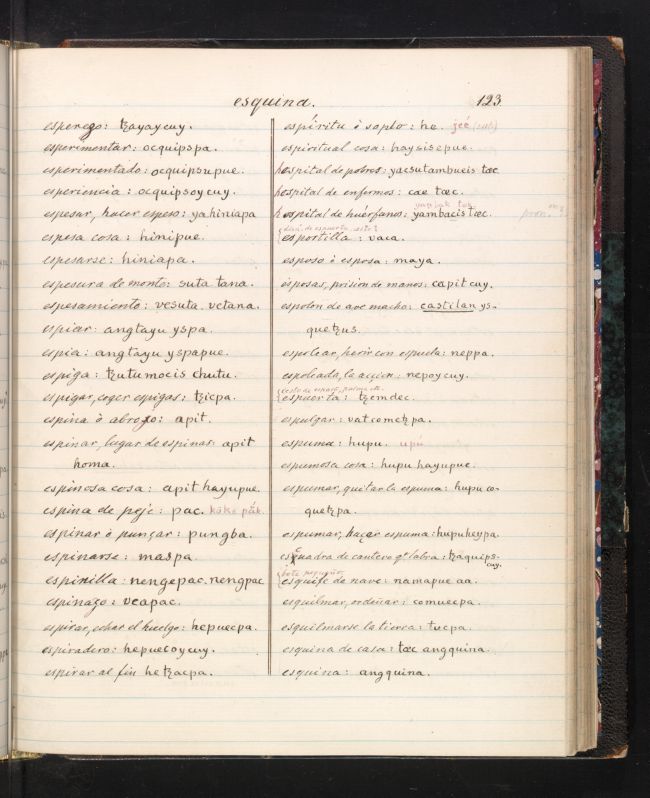 esquina.
123
esperezo: tzayaycuy.
esperimentar: ocquipspa.
esperimentado: ocquipsupue.
esperiencia: ocquipsoycuy.
espesar, hacer espeso: yahiniapa
espesa cosa: hinipue.
espesarse: hiniapa.
espesura de monte: suta tana.
espesamiento: vesuta. vetana.
espiar: angtayu yspa.
espia: angtayu yspapue.
espiga: tzutumocis chutu.
espigar, coger espigas: tzicpa.
espina ò abrojo: apit.
espinar, lugar de espinas: apit
homa.
espinosa cosa: apit hayupue.
espina de peje: pac.
espinar ò punçar: pungba.
espinarse: maspa.
espinilla: nengepac. nengpac
espinazo: vcapac.
espirar, echar el huelgo: hepuecpa.
espiradero: hepuecoycuy.
espirar al fin hetzaepa.
espíritu ò soplo: he. jeé
espiritual cosa: haysisepue.
hospital de pobres: yacsutambueis tœc
hospital de enfermos: cae tœc.
hospital de huérfanos: yambacis tœc.
esportilla: vaca.
esposo ò esposa: maya.
esposas, prision de manos: capitcuy.
espolon de ave macho: castilan ys-
quetzus.
espolear, herir con espuela: neppa.
espoleada, la accion: nepoycuy.
espuerta: tzemdec.
espulgar: vatcometzpa.
espuma: hupu. upú
espumosa cosa: hupu hayupue.
espumar, quitar la espuma: hupuco-
quetzpa.
espumar, haçer espuma: hupuheypa.
esquadra de cantero qe. labra: tzaquips-
cuy.
bote pequeño
esquife de nave: namapue aa.
esquilmar, ordeñar: comuecpa.
esquilmarse la tierra: tucpa.
esquina de casa: tœc angquina.
esquina: angquina.